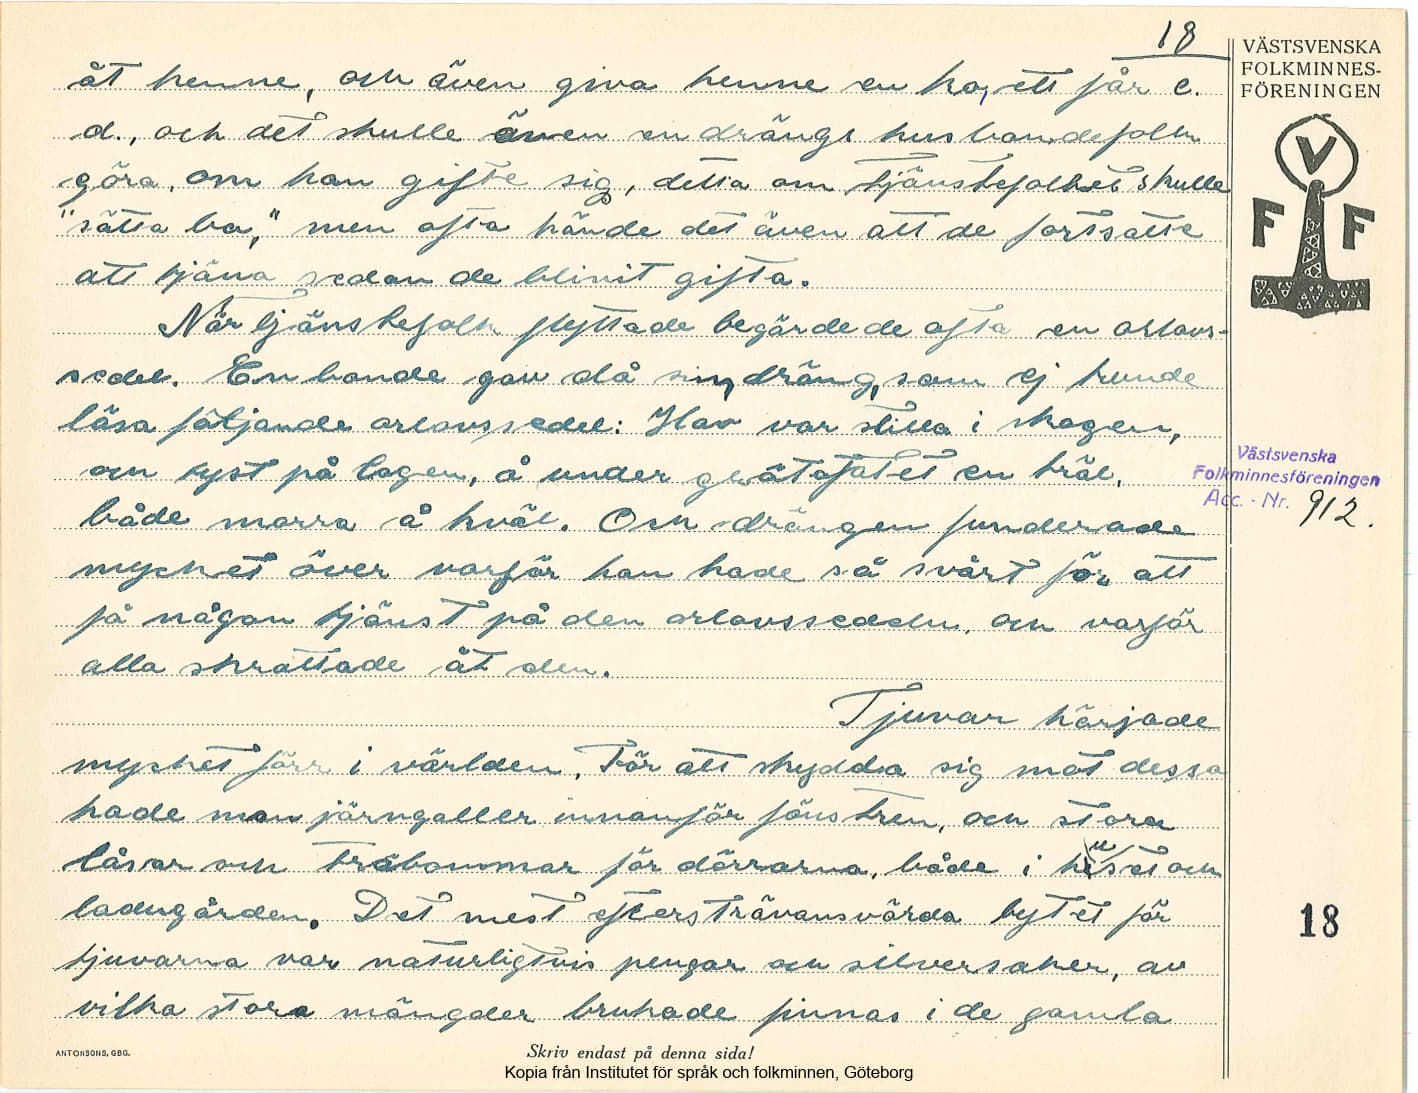 18
VÄSTSVENSKA
FOLKMINNES-
FÖRENINGEN
V
F F
åt henne, och även giva henne en ko, ett får e.
d., och det skulle även en drängs husbondefolk
göra, om han gifte sig, detta om tjänstefolket skulle
"sätta bo," men ofta hände det även att de fortsatte
att tjäna sedan de blivit gifta.
När tjänstefolk flyttade begärde de ofta en orlovs-
sedel. En bonde gav då sin dräng, som ej kunde
läsa följande orlovssedel: Han var stilla i skogen,
och tyst på logen, å under gråtafatet en träl,
både morra å kväl. Och drängen funderade
mycket över varför han hade så svårt för att
få någon tjänst på den orlovssedeln, och varför
alla skrattade åt den.
Tjuvar härjade
mycket förr i världen. För att skydda sig mot dessa
hade man järngaller innanför fönstren, och stora
låsar och träbommar för dörrarna, både i huset och
ladugården. Det mest eftersträvansvärda bytet för
tjuvarna var naturligtvis pengar och silversaker, av
vilka stora mängder brukade finnas i de gamla
Västsvenska
Folkminnesföreningen
Acc. - Nr. 912.
18
ANTONSONS, GBG.
Skriv endast på denna sida!
Kopia från Institutet för språk och folkminnen, Göteborg